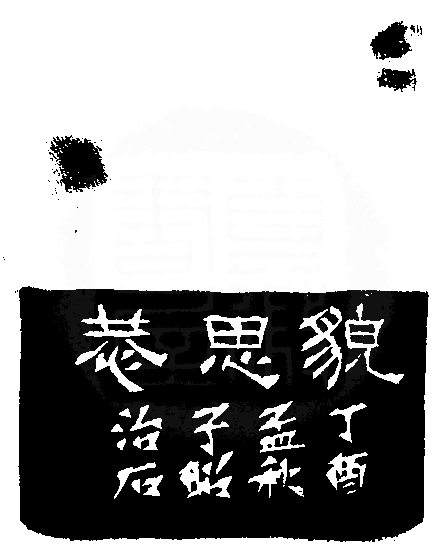 貌思恭
丁酉
孟秋
子昭
治石